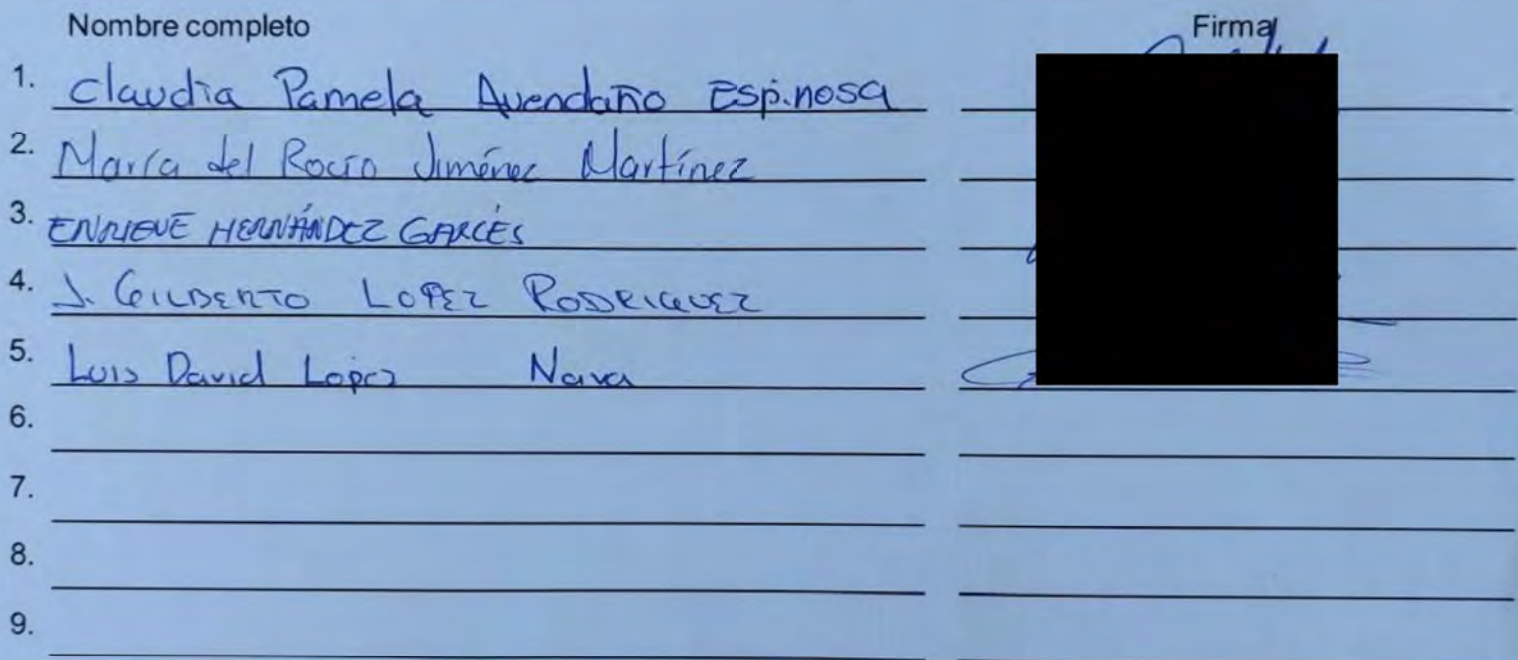 Nombre completo Firma
1. Claudia Pamela Avendaño Espinosa
2. María del Rocío Jiménez Martínez
3. ENRIQUE HERNÁNDEZ GARCÉS
4. J. GILBERTO LOPEZ RODRIGUEZ
5. Luis David López Nava
6.
7.
8.
9.